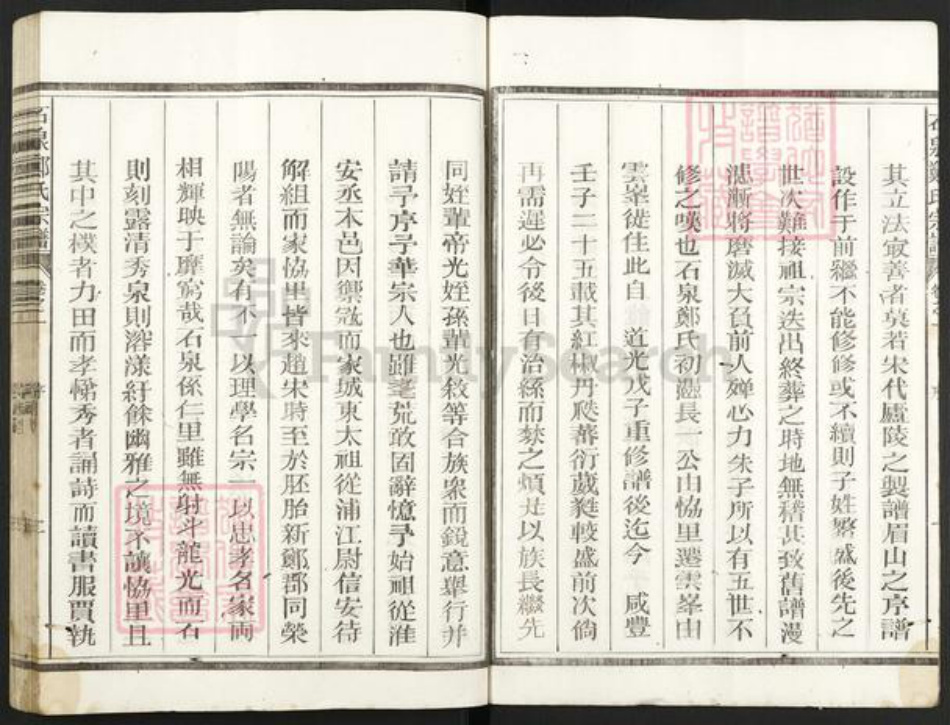 其立法㝡善者莫若宋代廬陵之製譜眉山之序譜
設作于前繼不能修修或不續則子姓繁盛後先之
世次難接祖宗迭出終葬之時地無稽其致舊譜漫
漶漸將磨滅大負前人殫心力朱子所以有五世不
修之嘆也石泉鄭氏初遷長一公由恊里遷雲峯由
雲峯徙住此自 道光戊子重修譜後迄今 咸豐
壬子二十五載其紅椒丹瓞蕃衍葳蕤較盛前次倘
再需遲必令後日有治絲而棼之煩是以族長繼先
同姪輩帝光姪孫輩光敘等合族衆而鏡意舉行并
請予序予華宗人也雖耄荒敢固辭憶予始祖從淮
安丞本邑因禦冦而家城東太祖從浦江尉信安待
解組而家恊里皆來趙宋時至於胚胎新鄭郡同榮
陽者無論矣有不一以理學名宗一以忠孝名家兩
相輝映于靡窮哉石泉係仁里雖無射斗龍光而石
則刻露清秀泉則溶漾紆餘幽雅之境不讓恊里且
其中之樸者力田而孝悌秀者誦詩而讀書服賈執
石泉鄭氏宗譜 卷之一 序
FamilySearch